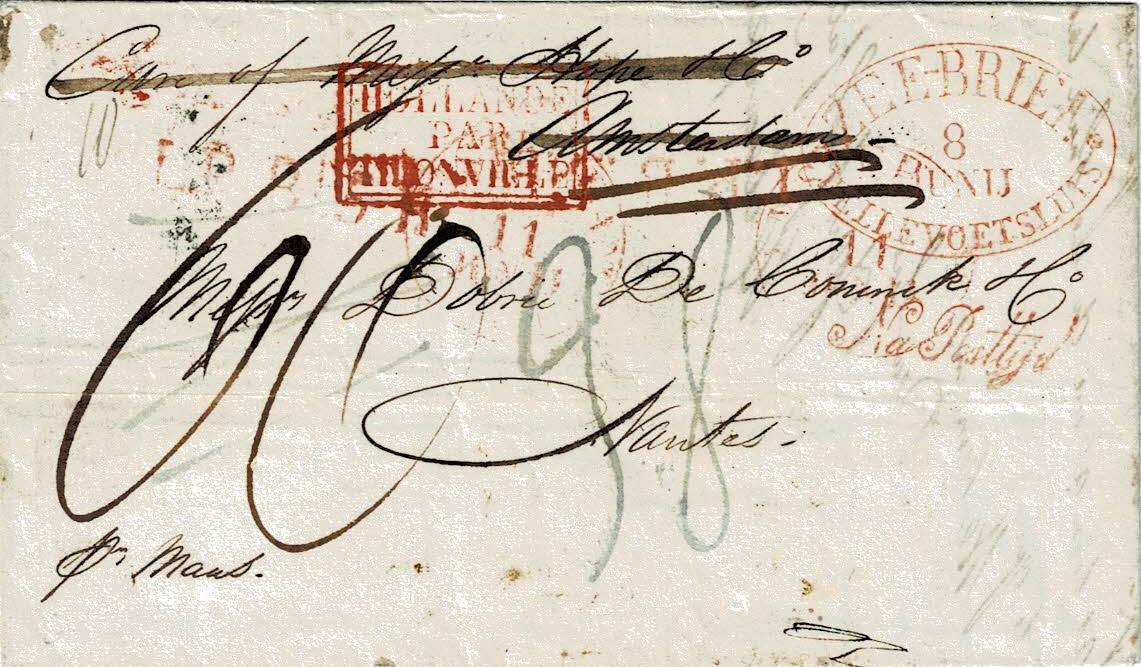 Care of Messrs Hope & Co
Amsterdam
ZEE-BRIEF
8
JUNIJ
HELLEVOETSLUIS
HOLLANDE
PAR
THIONVILLE
11
11
Messrs Dobrée De Coninck & Co
Na Posttijd
98
Nantes.
pr Maas.